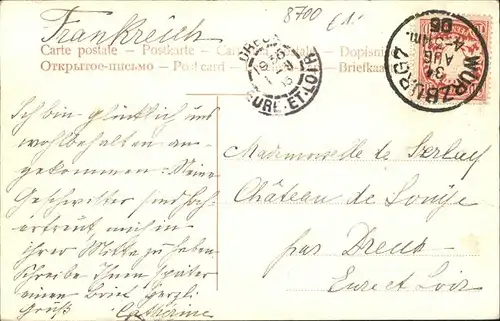 Frankreich
8700
Carte postale — Postkarte —
Открытое письмо — Postcard
Dopisni
Briefkaa
DREUX
EURE-ET-LOIR
WÜRZBURG 2
31
AUG
Ich bin glücklich und
wohlbehalten an-
gekommen. Meine
Geschwister sind sehr
erfreut mich in
ihrer Mitte zu haben
Schreibe Ihnen später
einen Brief herzl.
Gruß Catherine
Mademoiselle de
Château de
par Dreux
Eure et Loir